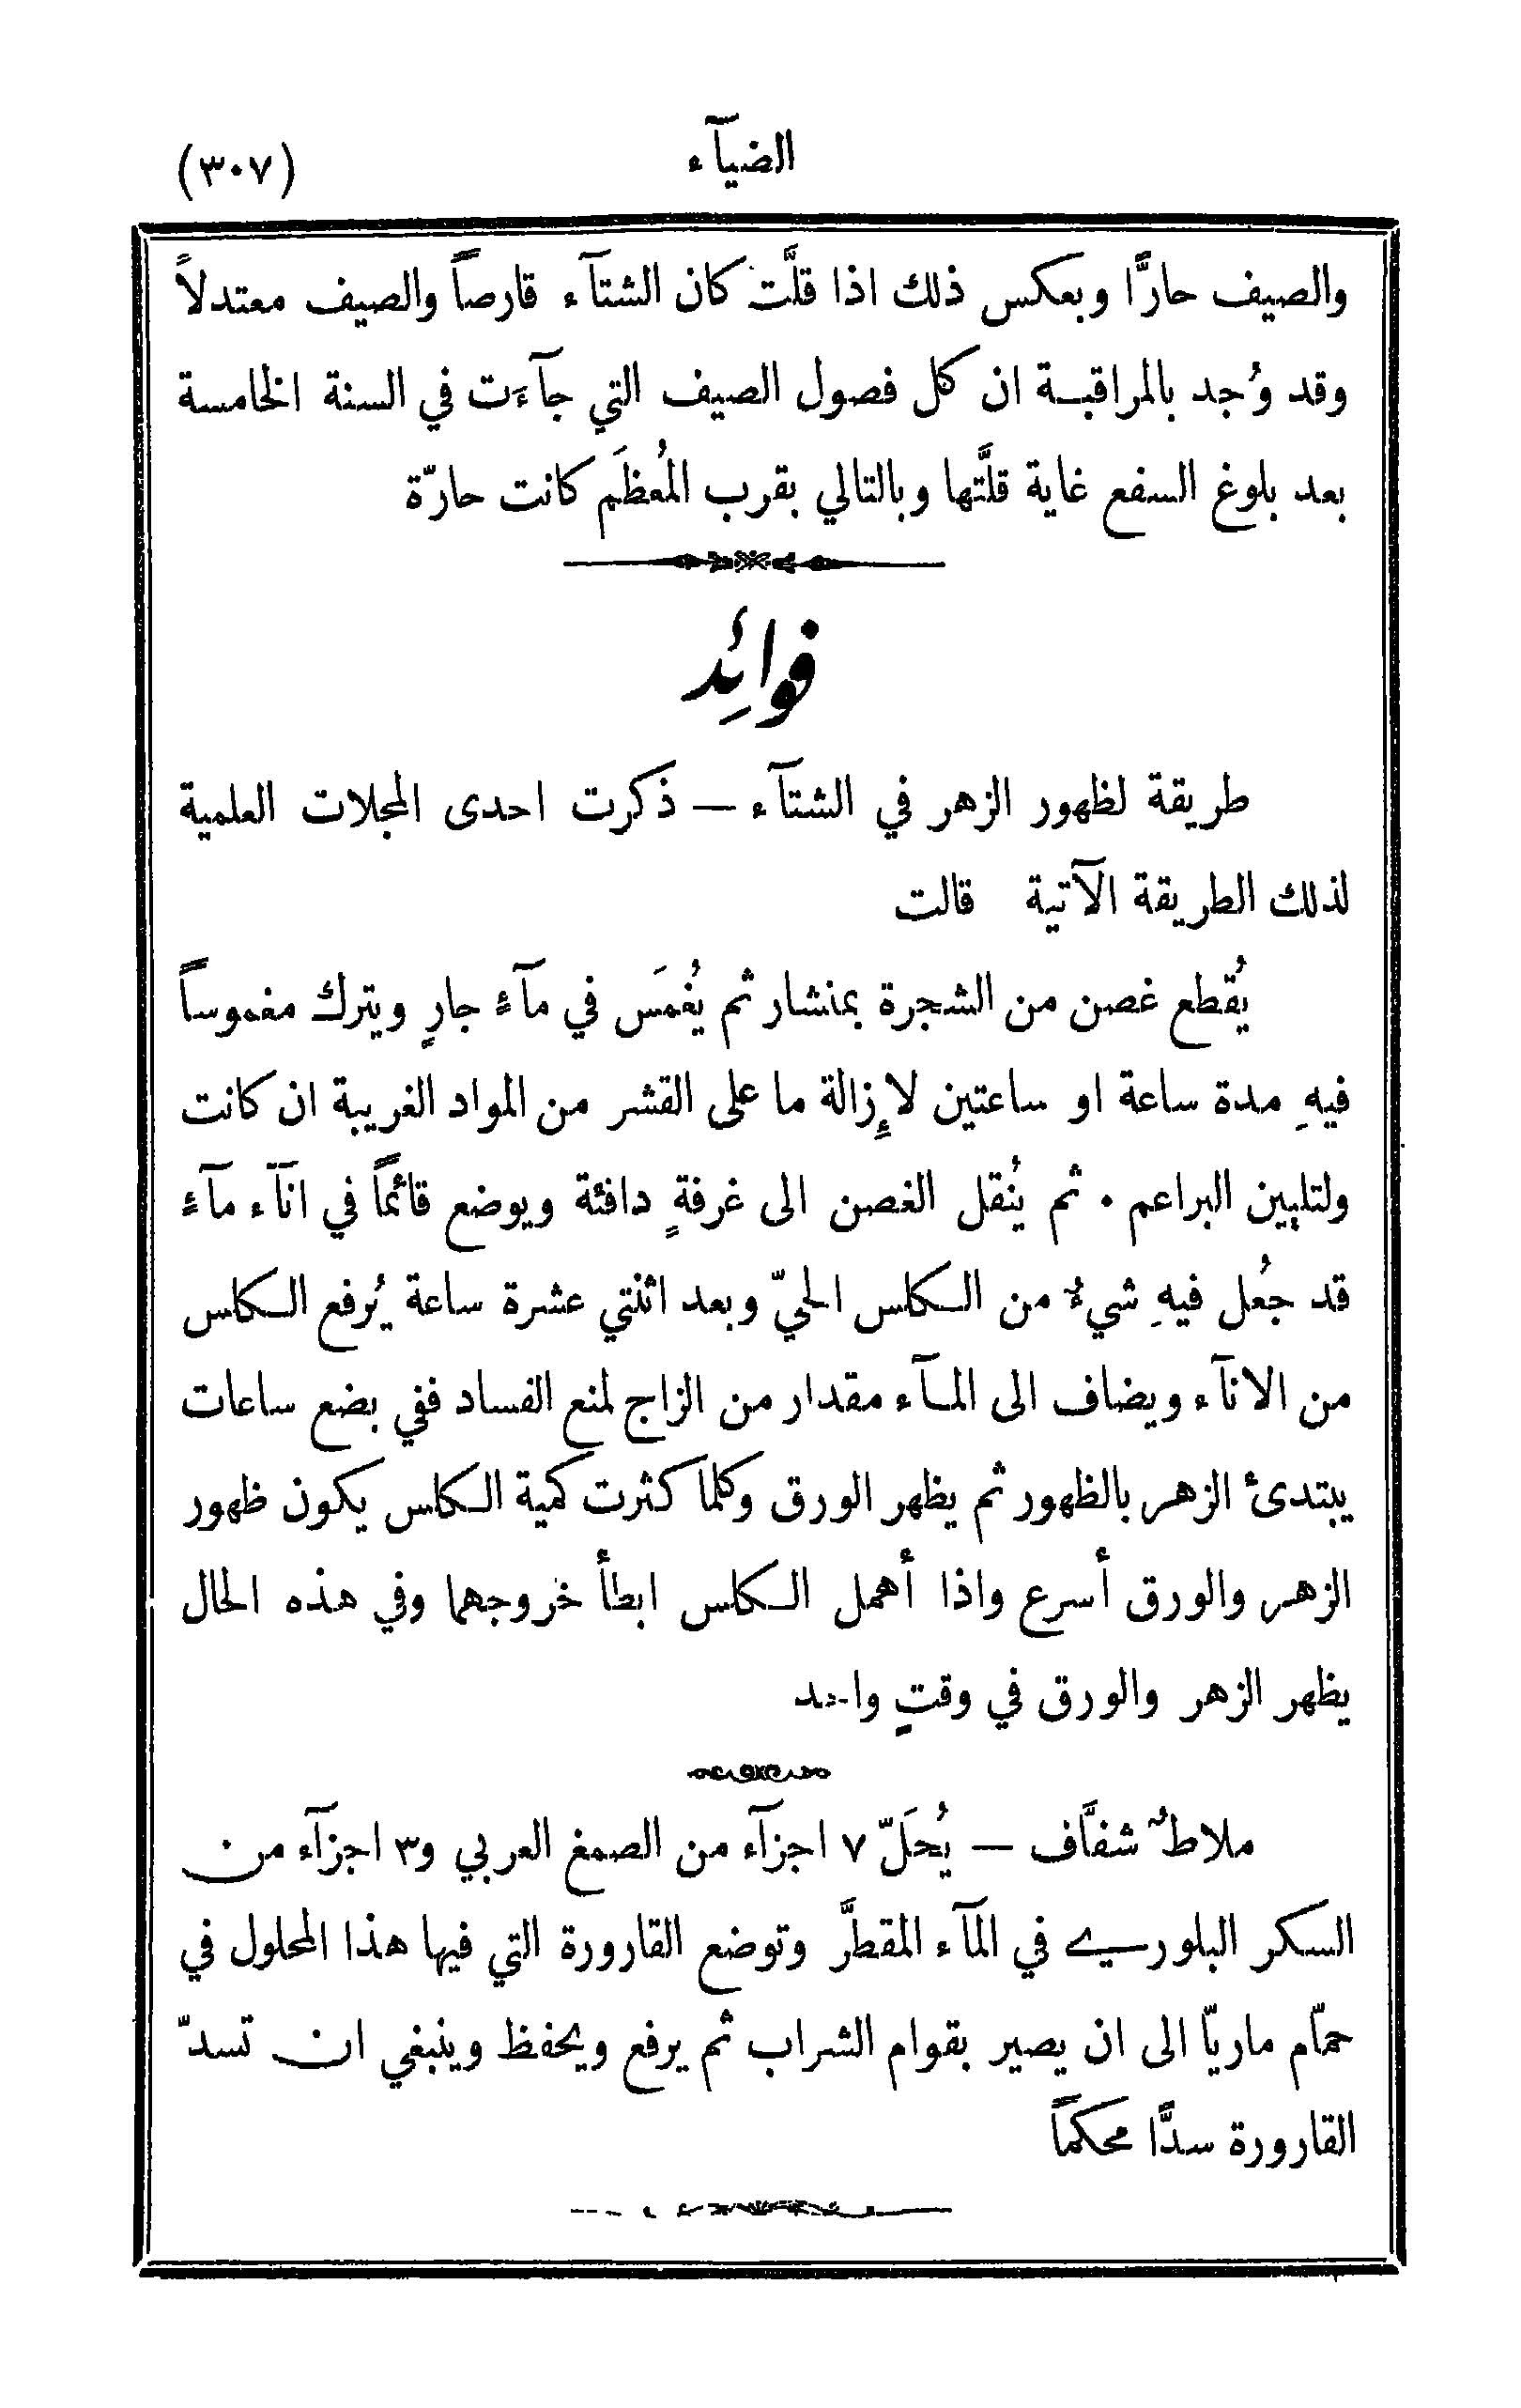 الضيآء
(٣٠٧)
والصيف حارًّا وبعكس ذلك اذا قلَّت كان الشتآء قارصاً والصيف معتدلاً
وقد وُجد بالمراقبة ان كل فصول الصيف التي جآءت في السنة الخامسة
بعد بلوغ السفع غاية قلَّتها وبالتالي بقرب المُعظَم كانت حارّة
فوائِد
طريقة لظهور الزهر في الشتآء — ذكرت احدى المجلات العلمية
لذلك الطريقة الآتية قالت
يُقطع غصن من الشجرة بمنشار ثم يُغمَس في مآءٍ جارٍ ويترك مغموساً
فيهِ مدة ساعة او ساعتين لإِزالة ما على القشر من المواد الغريبة ان كانت
ولتليين البراعم . ثم يُنقل الغصن الى غرفةٍ دافئة ويوضع قائماً في انآء مآءٍ
قد جُعل فيهِ شيءٌ من الكلس الحيّ وبعد اثنتي عشرة ساعة يُرفع الكلس
من الانآء ويضاف الى المآء مقدار من الزاج لمنع الفساد ففي بضع ساعات
يبتدئ الزهر بالظهور ثم يظهر الورق وكلما كثرت كمية الكلس يكون ظهور
الزهر والورق أسرع واذا أهمل الكلس ابطأ خروجهما وفي هذه الحال
يظهر الزهر والورق في وقتٍ واحد
ملاطٌ شفَّاف — يُحَلّ ٧ اجزآء من الصمغ العربي و٣ اجزآء من
السكر البلوري في المآء المقطَّر وتوضع القارورة التي فيها هذا المحلول في
حمّام ماريّا الى ان يصير بقوام الشراب ثم يرفع ويحفظ وينبغي ان تسدّ
القارورة سدًّا محكماً